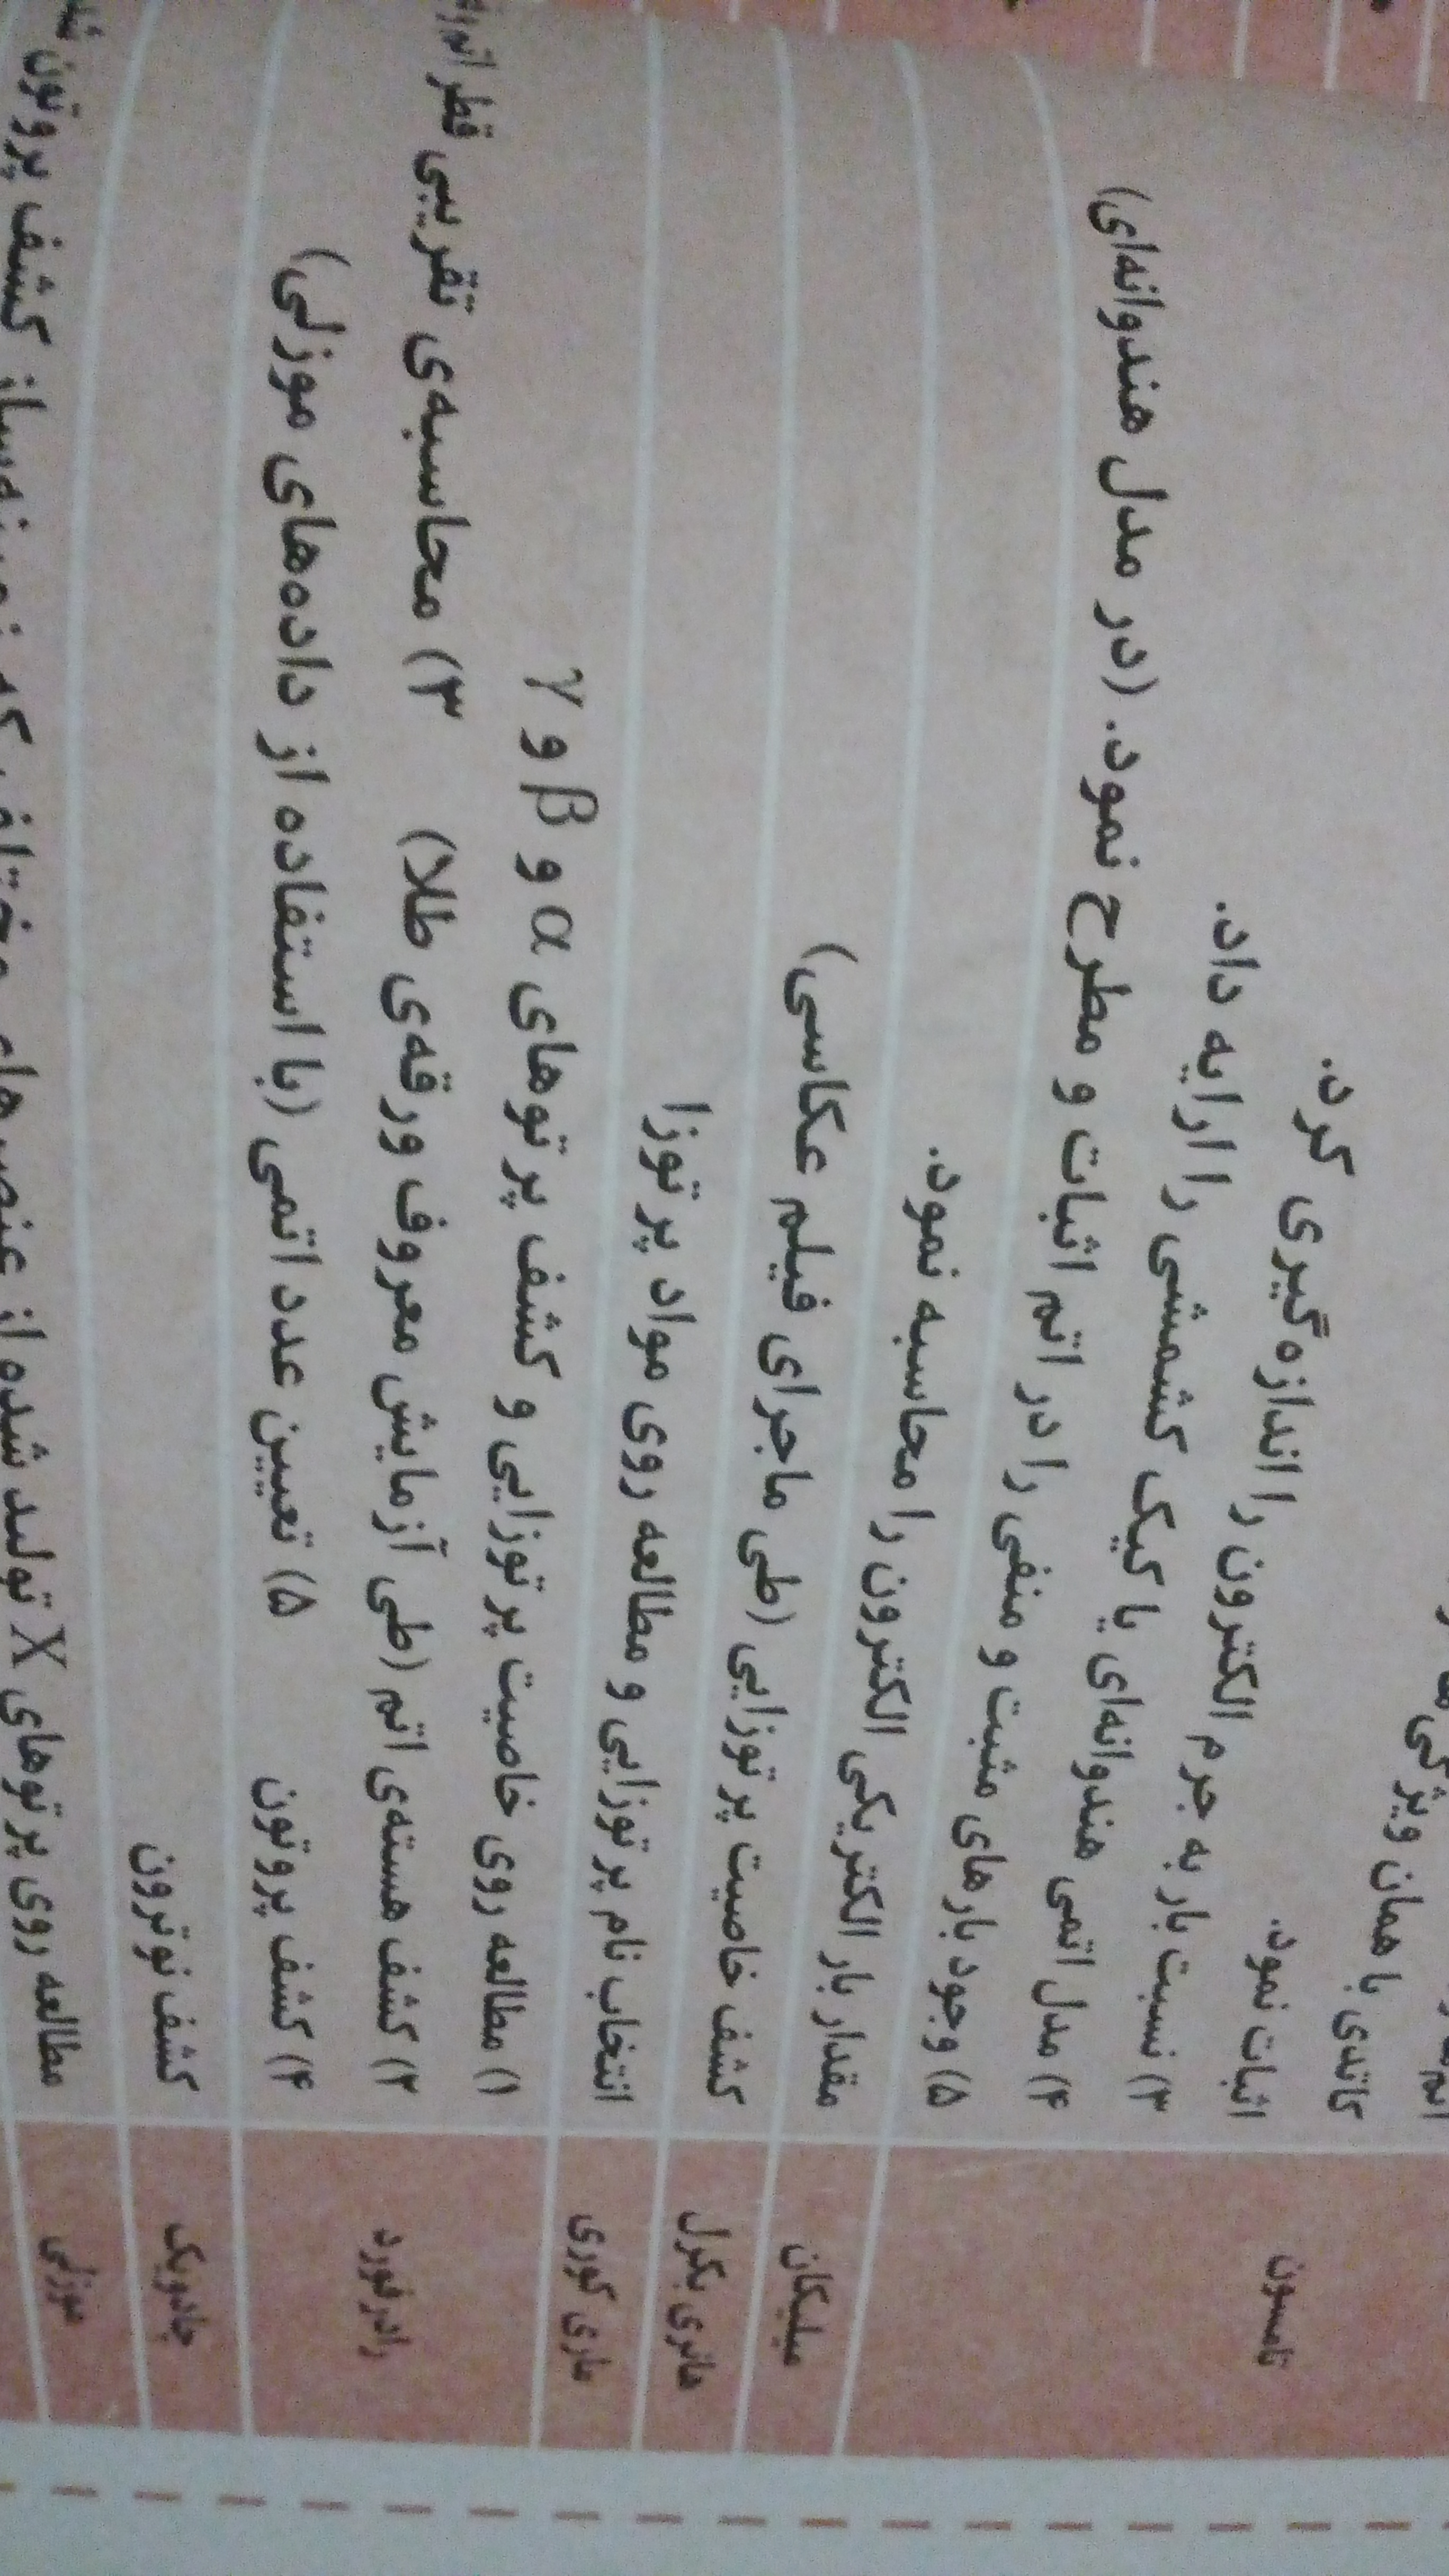 با همان ویژگی‌های
کاتدی
کرد.
اثبات نمود.
تامسون
۳) نسبت بار به جرم الکترون را اندازه‌گیری
۴) مدل اتمی هندوانه‌ای یا کیک کشمشی را ارایه داد.
۵) وجود بارهای مثبت و منفی را در اتم اثبات و مطرح نمود. (در مدل هندوانه‌ای)
میلیکان مقدار بار الکتریکی الکترون را محاسبه نمود.
هانری بکرل کشف خاصیت پرتوزایی (طی ماجرای فیلم عکاسی)
ماری کوری انتخاب نام پرتوزایی و مطالعه روی مواد پرتوزا
۱) مطالعه روی خاصیت پرتوزایی و کشف پرتوهای α و β و γ
رادرفورد ۲) کشف هسته‌ی اتم (طی آزمایش معروف ورقه‌ی طلا) ۳) محاسبه‌ی تقریبی قطر اتم
۴) کشف پروتون ۵) تعیین عدد اتمی (با استفاده از داده‌های موزلی)
چادویک کشف نوترون
موزلی مطالعه روی پرتوهای X تولید شده از عنصرهای مختلف که زمینه‌ساز کشف پروتون شد